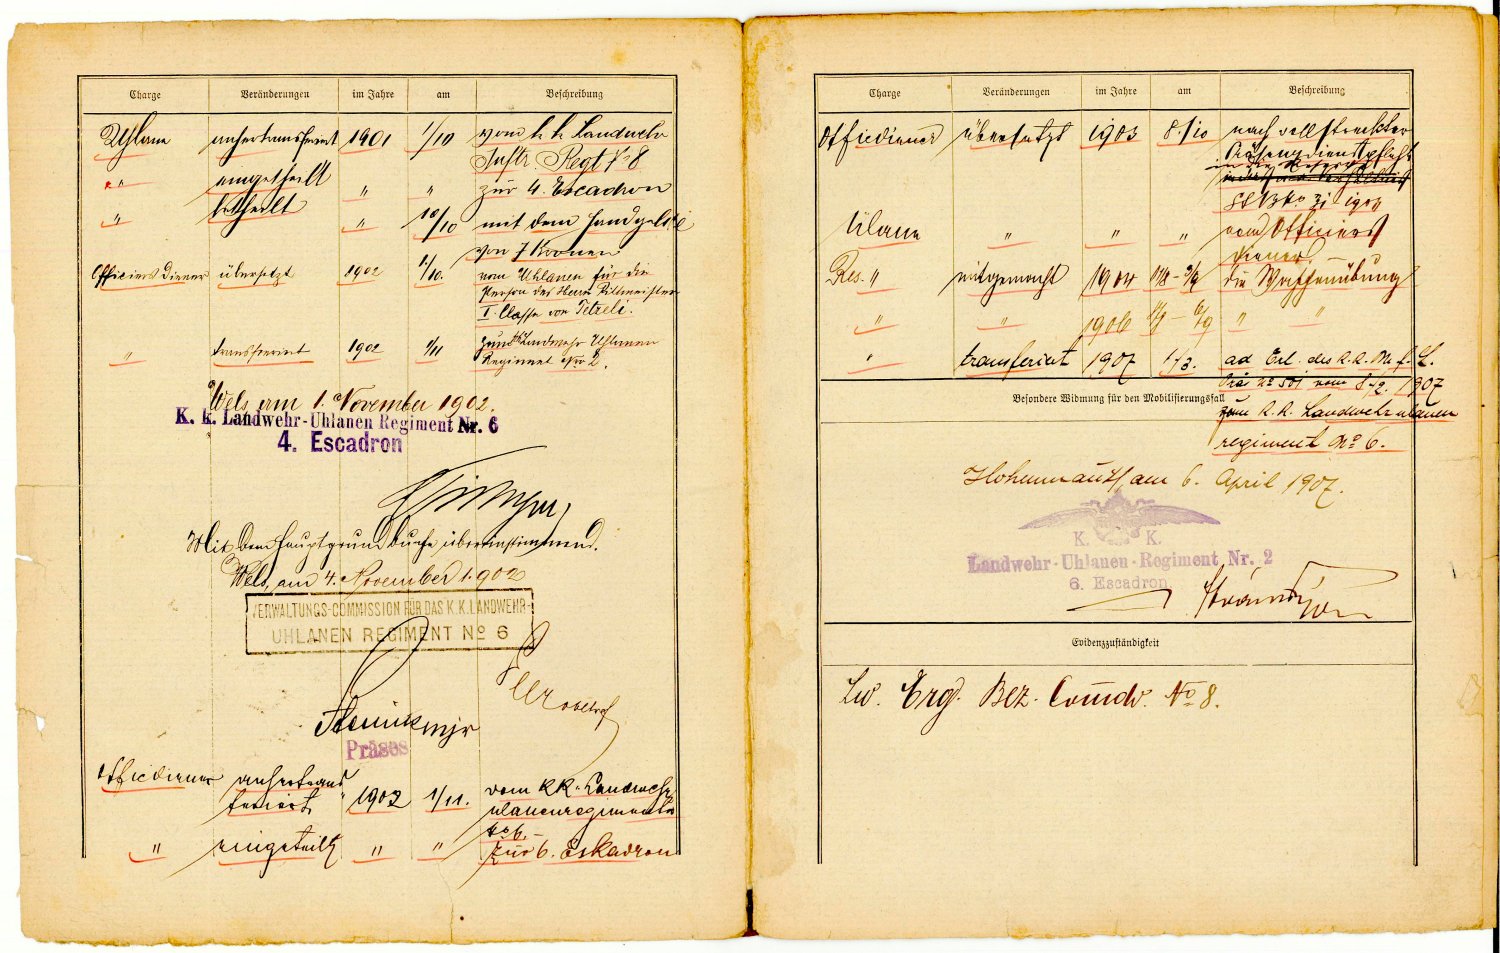 Charge Veränderungen im Jahre am Beschreibung
Uhlane anhertransferirt 1901 1/10 vom k. k. Landwehr
Inftr. Regt No 8
" eingetheilt " " zur 4. Escadron
" betheilt " 10/10 mit dem Handgelde
von 7 Kronen
Officiers Diener übersetzt 1902 1/10. vom Uhlanen für die
Person des Herrn Rittmeister
I. Classe von
" transferirt 1902 1/11 zum Landwehr Uhlanen
Regiment No 2.
Wels am 1. November 1902.
K. k. Landwehr-Uhlanen Regiment Nr. 6
4. Escadron
Mit dem Hauptgrundbuche übereinstimmend.
Wels, am 4. November 1902
VERWALTUNGS-COMMISSION FÜR DAS K.K. LANDWEHR-
UHLANEN REGIMENT No 6
Präses
Officdiener anhertrans
feriert 1902 1/11. vom k.k. Landwehr
ulanenregimente
No 6.
" eingeteilt " " zur 6. Eskadron
Charge Veränderungen im Jahre am Beschreibung
Offizdiener übersetzt 1903 8/10 nach vollstreckter
Präsenzdienstpflicht
in die Reserve
Ulane " " " vom Officiers
diener
Res. " mitgemacht 1904 die Waffenübung
" " 1906 " "
" transferirt 1907 1/3. ad Erl. des k. k. M. f. L.
Präs No 501 vom 8/2. 1907
Besondere Widmung für den Mobilisierungsfall
zum k. k. Landwehrulanen
regiment No 6.
Hohenmauth, am 6. April 1907.
K. K.
Landwehr-Uhlanen-Regiment Nr. 2
6. Escadron
Evidenzzuständigkeit
Lw. Erg. Bez. Comdo. No 8.